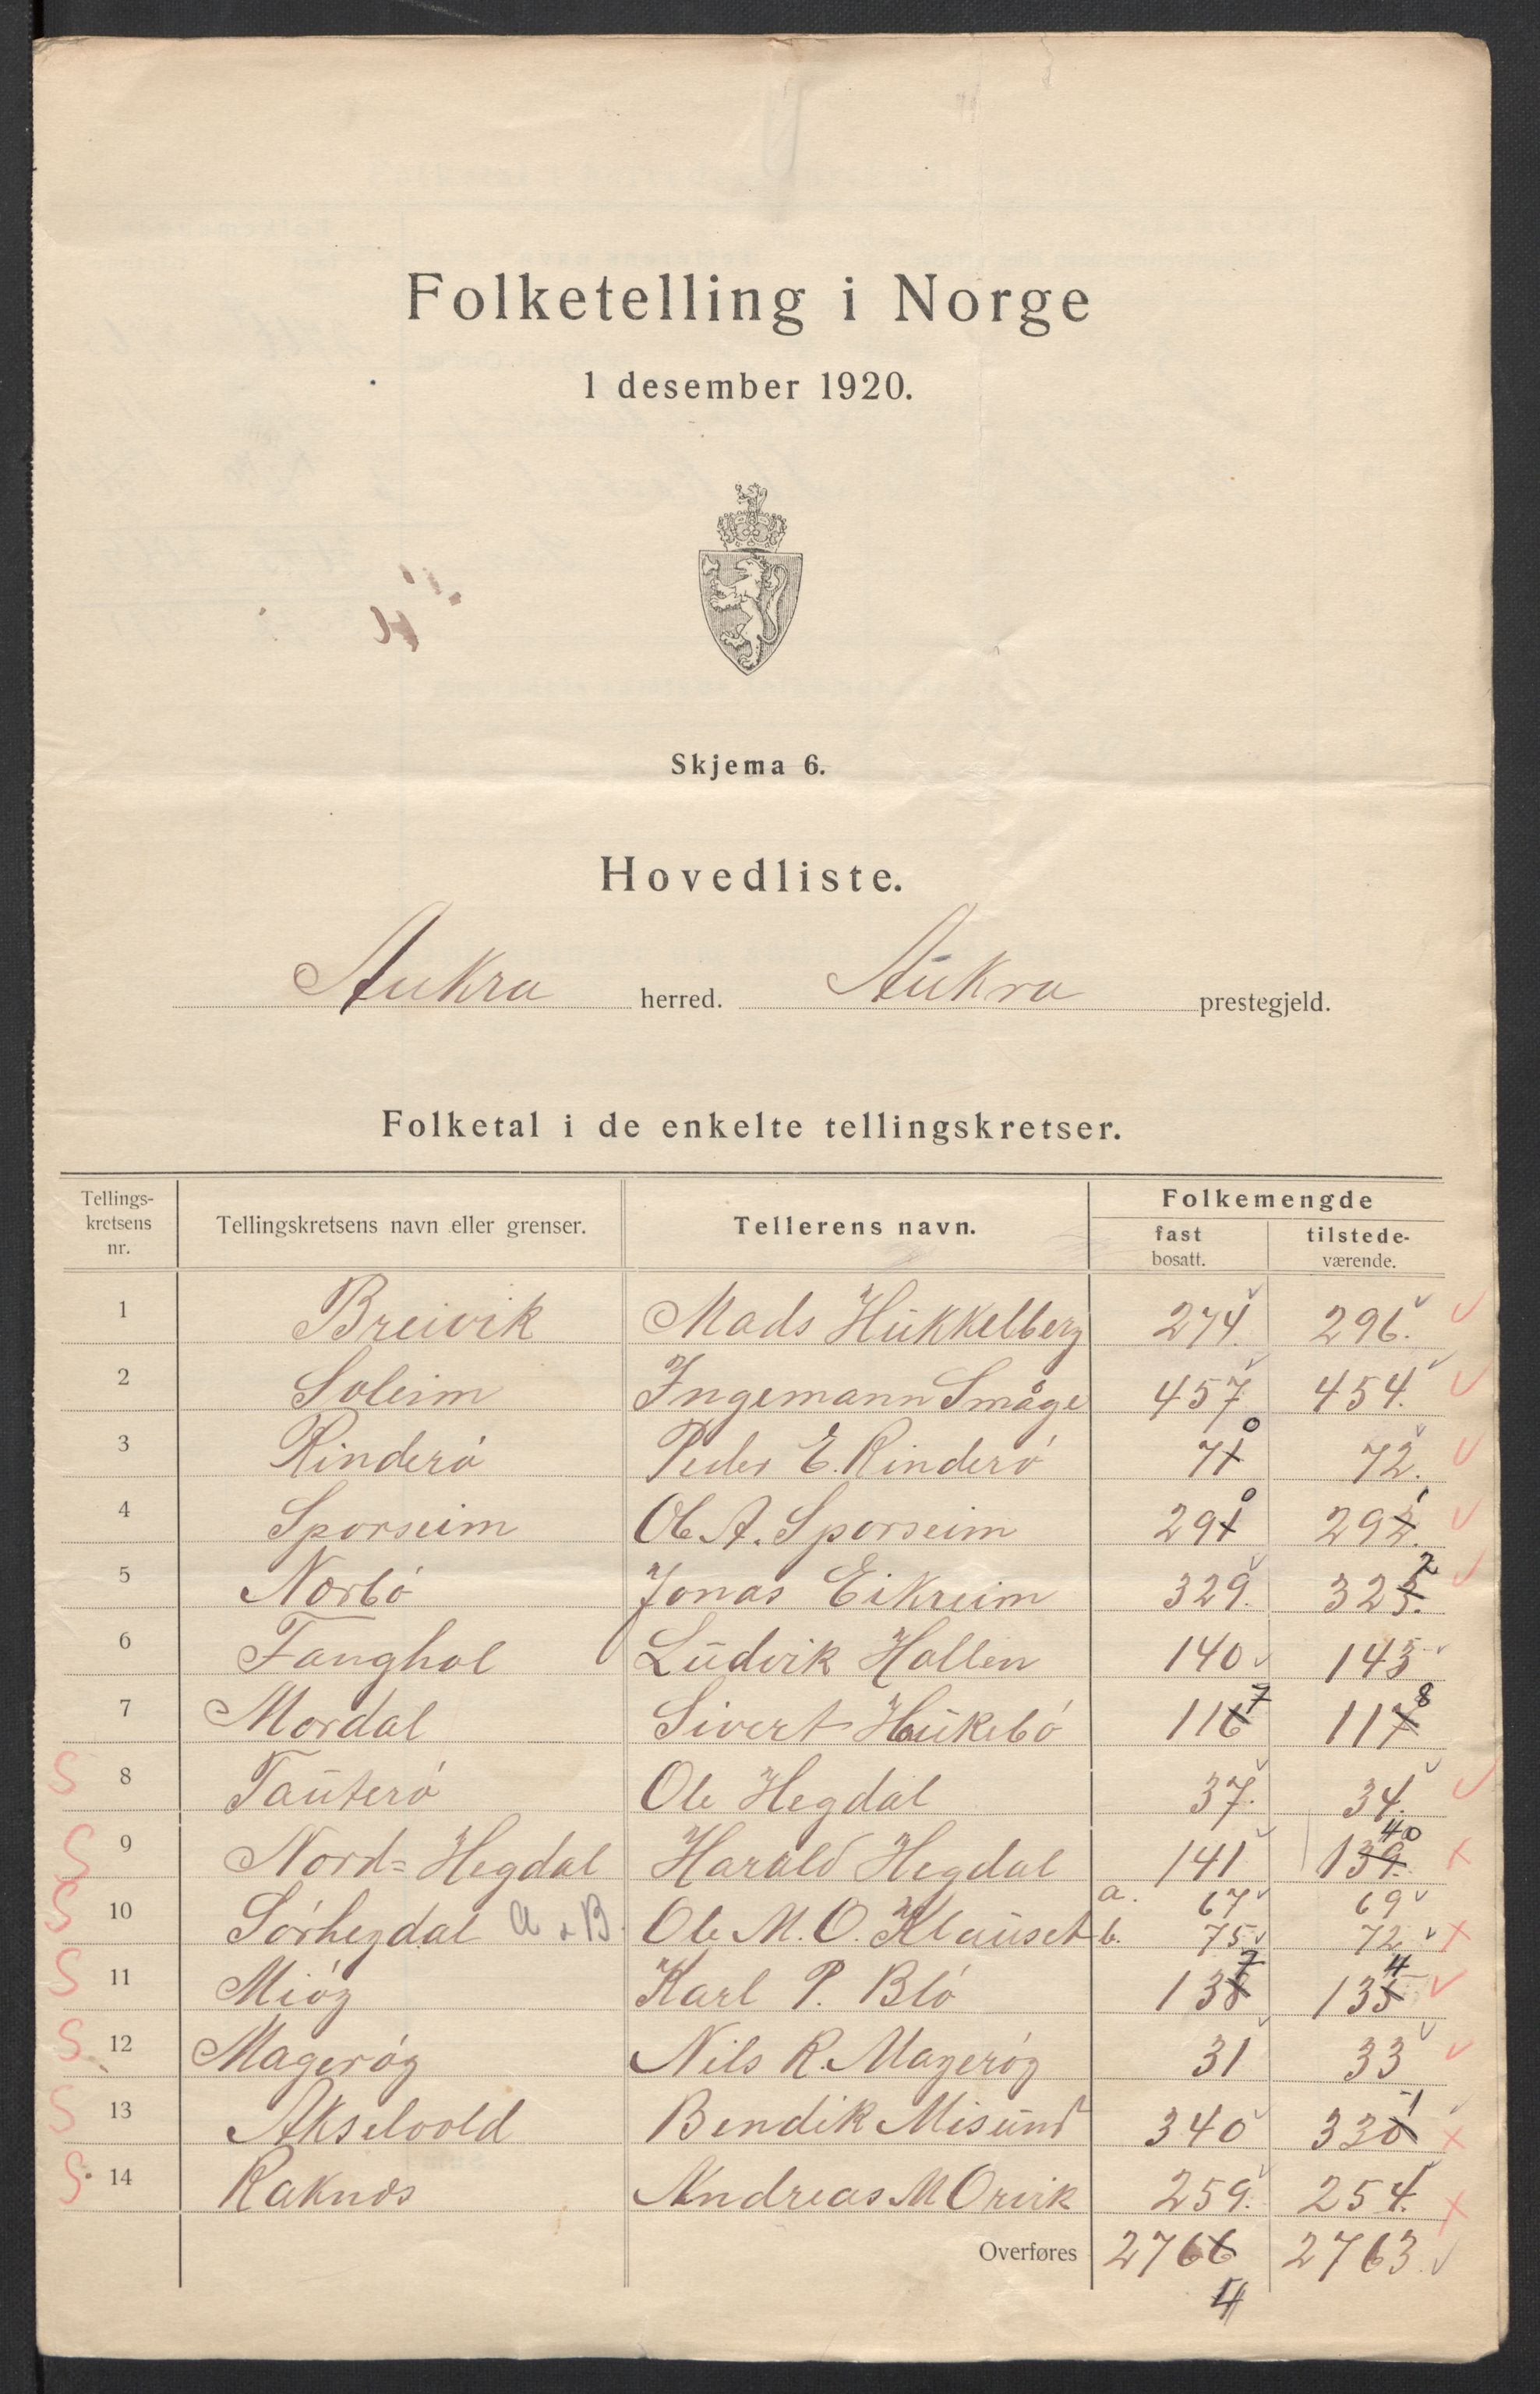 Folketelling i Norge
1 desember 1920.
Skjema 6.
Hovedliste.
Aukra herred. Aukra prestegjeld.
Folketal i de enkelte tellingskretser.
Tellings-kretsens nr. Tellingskretsens navn eller grenser. Tellerens navn. Folkemengde
fast bosatt. tilstede-værende.
1 Breivik Mads Hukkelberg 274. 296.
2 Soleim Ingemann Småge 457 454.
3 Rinderö Peder E. Rinderö 71 0 72.
4 Sporseim Ole A. Sporseim 291 0 292. 1
5 Nørbö Jonas Eikreim 329. 323. 2
6 Tanghol Ludvik Hollen 140 143
7 Mordal Sivert Hukebö 116 7 117 8
S 8 Tauterö Ole Hegdal 37. 34.
S 9 Nord-Hegdal Harald Hegdal 141 139. 40
S 10 Sörhegdal a + B. Ole M. O. Klauset a. 67 69
b. 75 72
S 11 Miög Karl P. Blö 138 7 135 4
S 12 Magerög Nils R. Magerög 31 33
S 13 Akselvold Bendik Misund 340 330 1
S 14 Raknes Andreas M Orvik 259. 254.
Overføres 2766 2763.
4